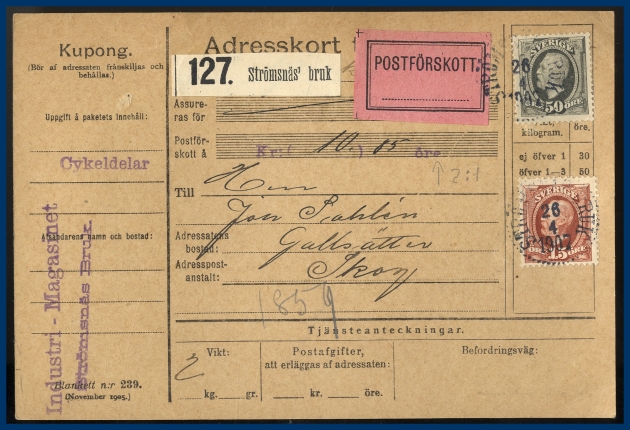 Kupong.
(Bör af adressaten frånskiljas och
behållas.)
Uppgift å paketets innehåll:
Cykeldelar
Afsändarens namn och bostad:
Industri-Magasinet
Strömsnäs Bruk.
Blankett n:r 239.
(November 1905.)
Adresskort
127. Strömsnäs' bruk
POSTFÖRSKOTT.
Assure-
ras för
Postför-
skott å Kr: (10.) 85 öre
2:1
Till Herr
Jon Dahlén
Adressatens
bostad: Gallsätter
Adresspost-
anstalt: Skog
1859
Tjänsteanteckningar.
Vikt:
2
kg. gr.
Postafgifter,
att erläggas af adressaten:
kr. öre.
Befordringsväg:
SVERIGE
50 ÖRE
26
kilogram. öre.
ej öfver 1 30
öfver 1—3 50
SVERIGE
15 ÖRE
26
4
1907